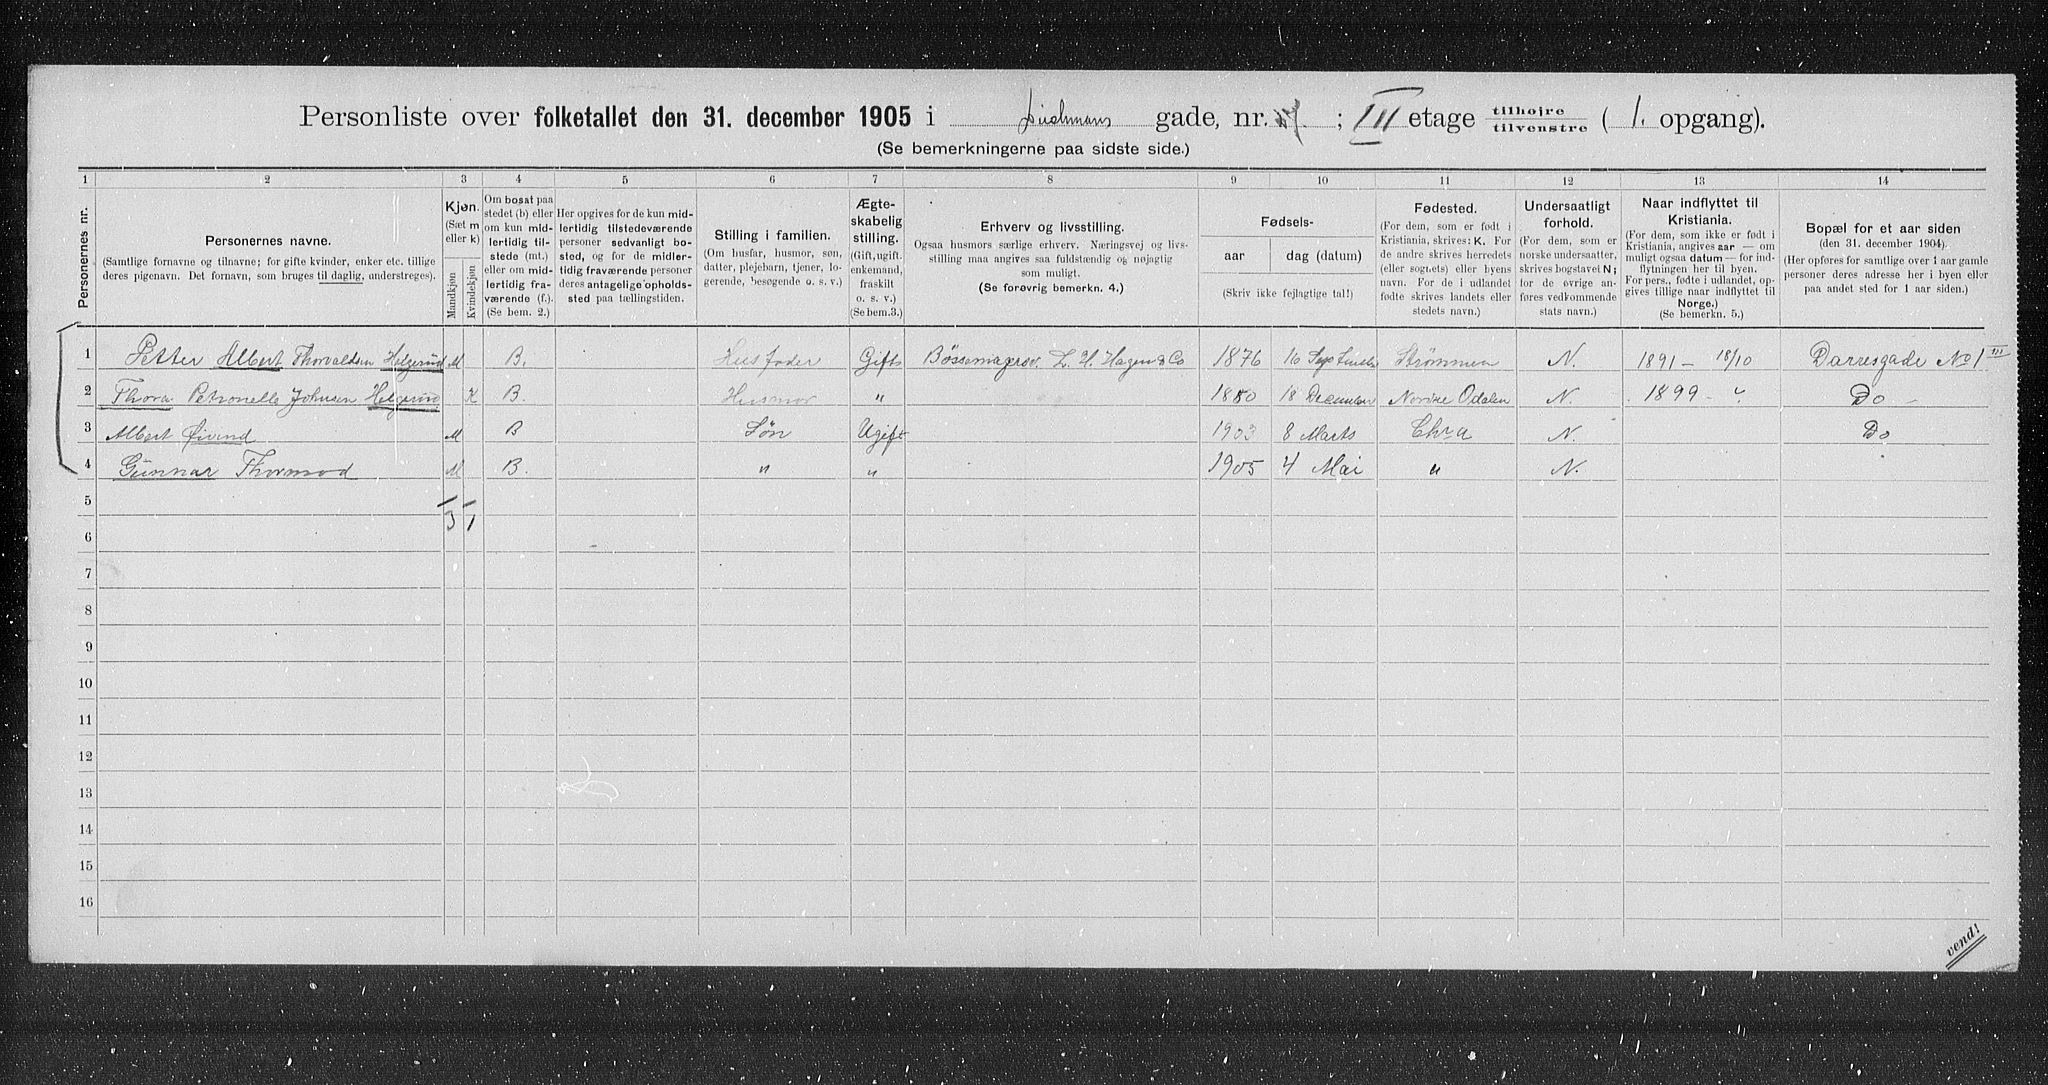 Personliste over folketallet den 31. december 1905 i Deichmans gade, nr. ; III etage tilhøjre tilvenstre ( 1. opgang).
(Se bemerkningerne paa sidste side.)
1 2 3 4 5 6 7 8 9 10 11 12 13 14
Personernes nr.
Personernes navne.
(Samtlige fornavne og tilnavne; for gifte kvinder, enker etc. tillige deres pigenavn. Det fornavn, som bruges til daglig, understreges).
Kjøn.
(Sæt m eller k)
Mandkjøn
Kvindekjøn
Om bosat paa stedet (b) eller om kun midlertidig tilstede (mt.) eller om midlertidig fraværende (f.). (Se bem. 2.)
Her opgives for de kun midlertidig tilstedeværende personer sedvanligt bosted, og for de midlertidig fraværende personer deres antagelige opholdssted paa tællingstiden.
Stilling i familien.
(Om husfar, husmor, søn, datter, plejebarn, tjener, logerende, besøgende o. s. v.)
Ægteskabelig stilling.
(Gift, ugift, enkemand, fraskilt o. s. v.) (Se bem.3.)
Erhverv og livsstilling.
Ogsaa husmors særlige erhverv. Næringsvej og livsstilling maa angives saa fuldstændig og nøjagtig som muligt.
(Se forøvrig bemerkn. 4.)
Fødsels-
aar
dag (datum)
(Skriv ikke fejlagtige tal!)
Fødested.
(For dem, som er født i Kristiania, skrives: K. For de andre skrives herredets (eller sogtets) eller byens navn. For de i udlandet fødte skrives landets eller stedets navn.)
Undersaatligt forhold.
(For dem, som er norske undersaatter, skrives bogstavet N; for de øvrige anføres vedkommende stats navn.)
Naar indflyttet til Kristiania.
(For dem, som ikke er født i Kristiania, angives aar — om muligt ogsaa datum — for indflytningen her til byen. For pers., fødte i udlandet, opgives tillige naar indflyttet til Norge.)
(Se bemerkn. 5.)
Bopæl for et aar siden
(den 31. december 1904).
(Her opføres for samtlige over 1 aar gamle personer deres adresse her i byen eller paa andet sted for 1 aar siden.)
1 Petter Albert Thorvaldsen Helgerud M B. Husfader Gift Bøssemagersv. L. H. Hagen & Co 1876 16 Strømmen N. 1891 - 18/10 Darresgade No 1 III
2 Thora Petronelle Johnsen Helgerud K B. Husmor " 1880 18 December Nordre Odalen N. 1899 - " Do -
3 Albert Øivind M B Søn Ugift 1903 8 Marts Chra N. Do
4 Gunnar Thormod M B. " " 1905 4 Mai " N.
5 3 1
6
7
8
9
10
11
12
13
14
15
16
vend!